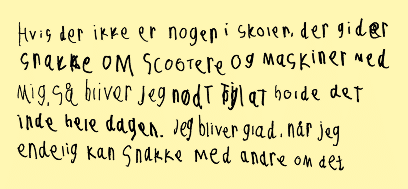 Hvis der ikke er nogen i skolen, der gider
snakke om scootere og maskiner med
mig, så bliver jeg nødt til at holde det
inde hele dagen. Jeg bliver glad, når jeg
endelig kan snakke med andre om det